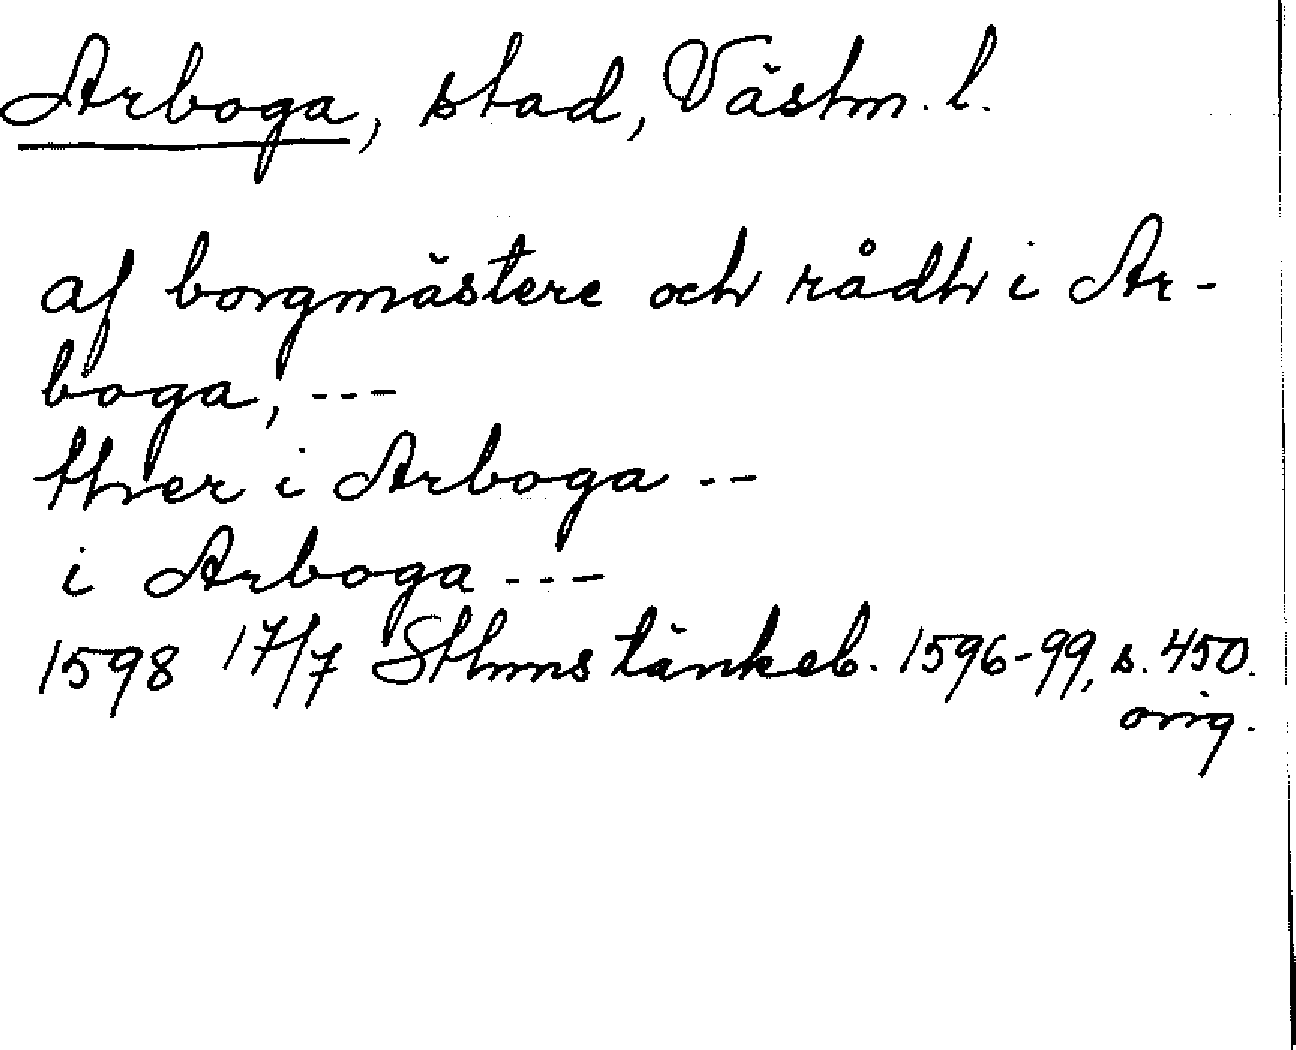 Arboga, stad, Västm. l.
af borgmästere och rådh i Ar-
boga, ---
ther i Arboga --
i Arboga ---
1598 17/7 Sthms tänkeb. 1596-99, s. 450.
orig.